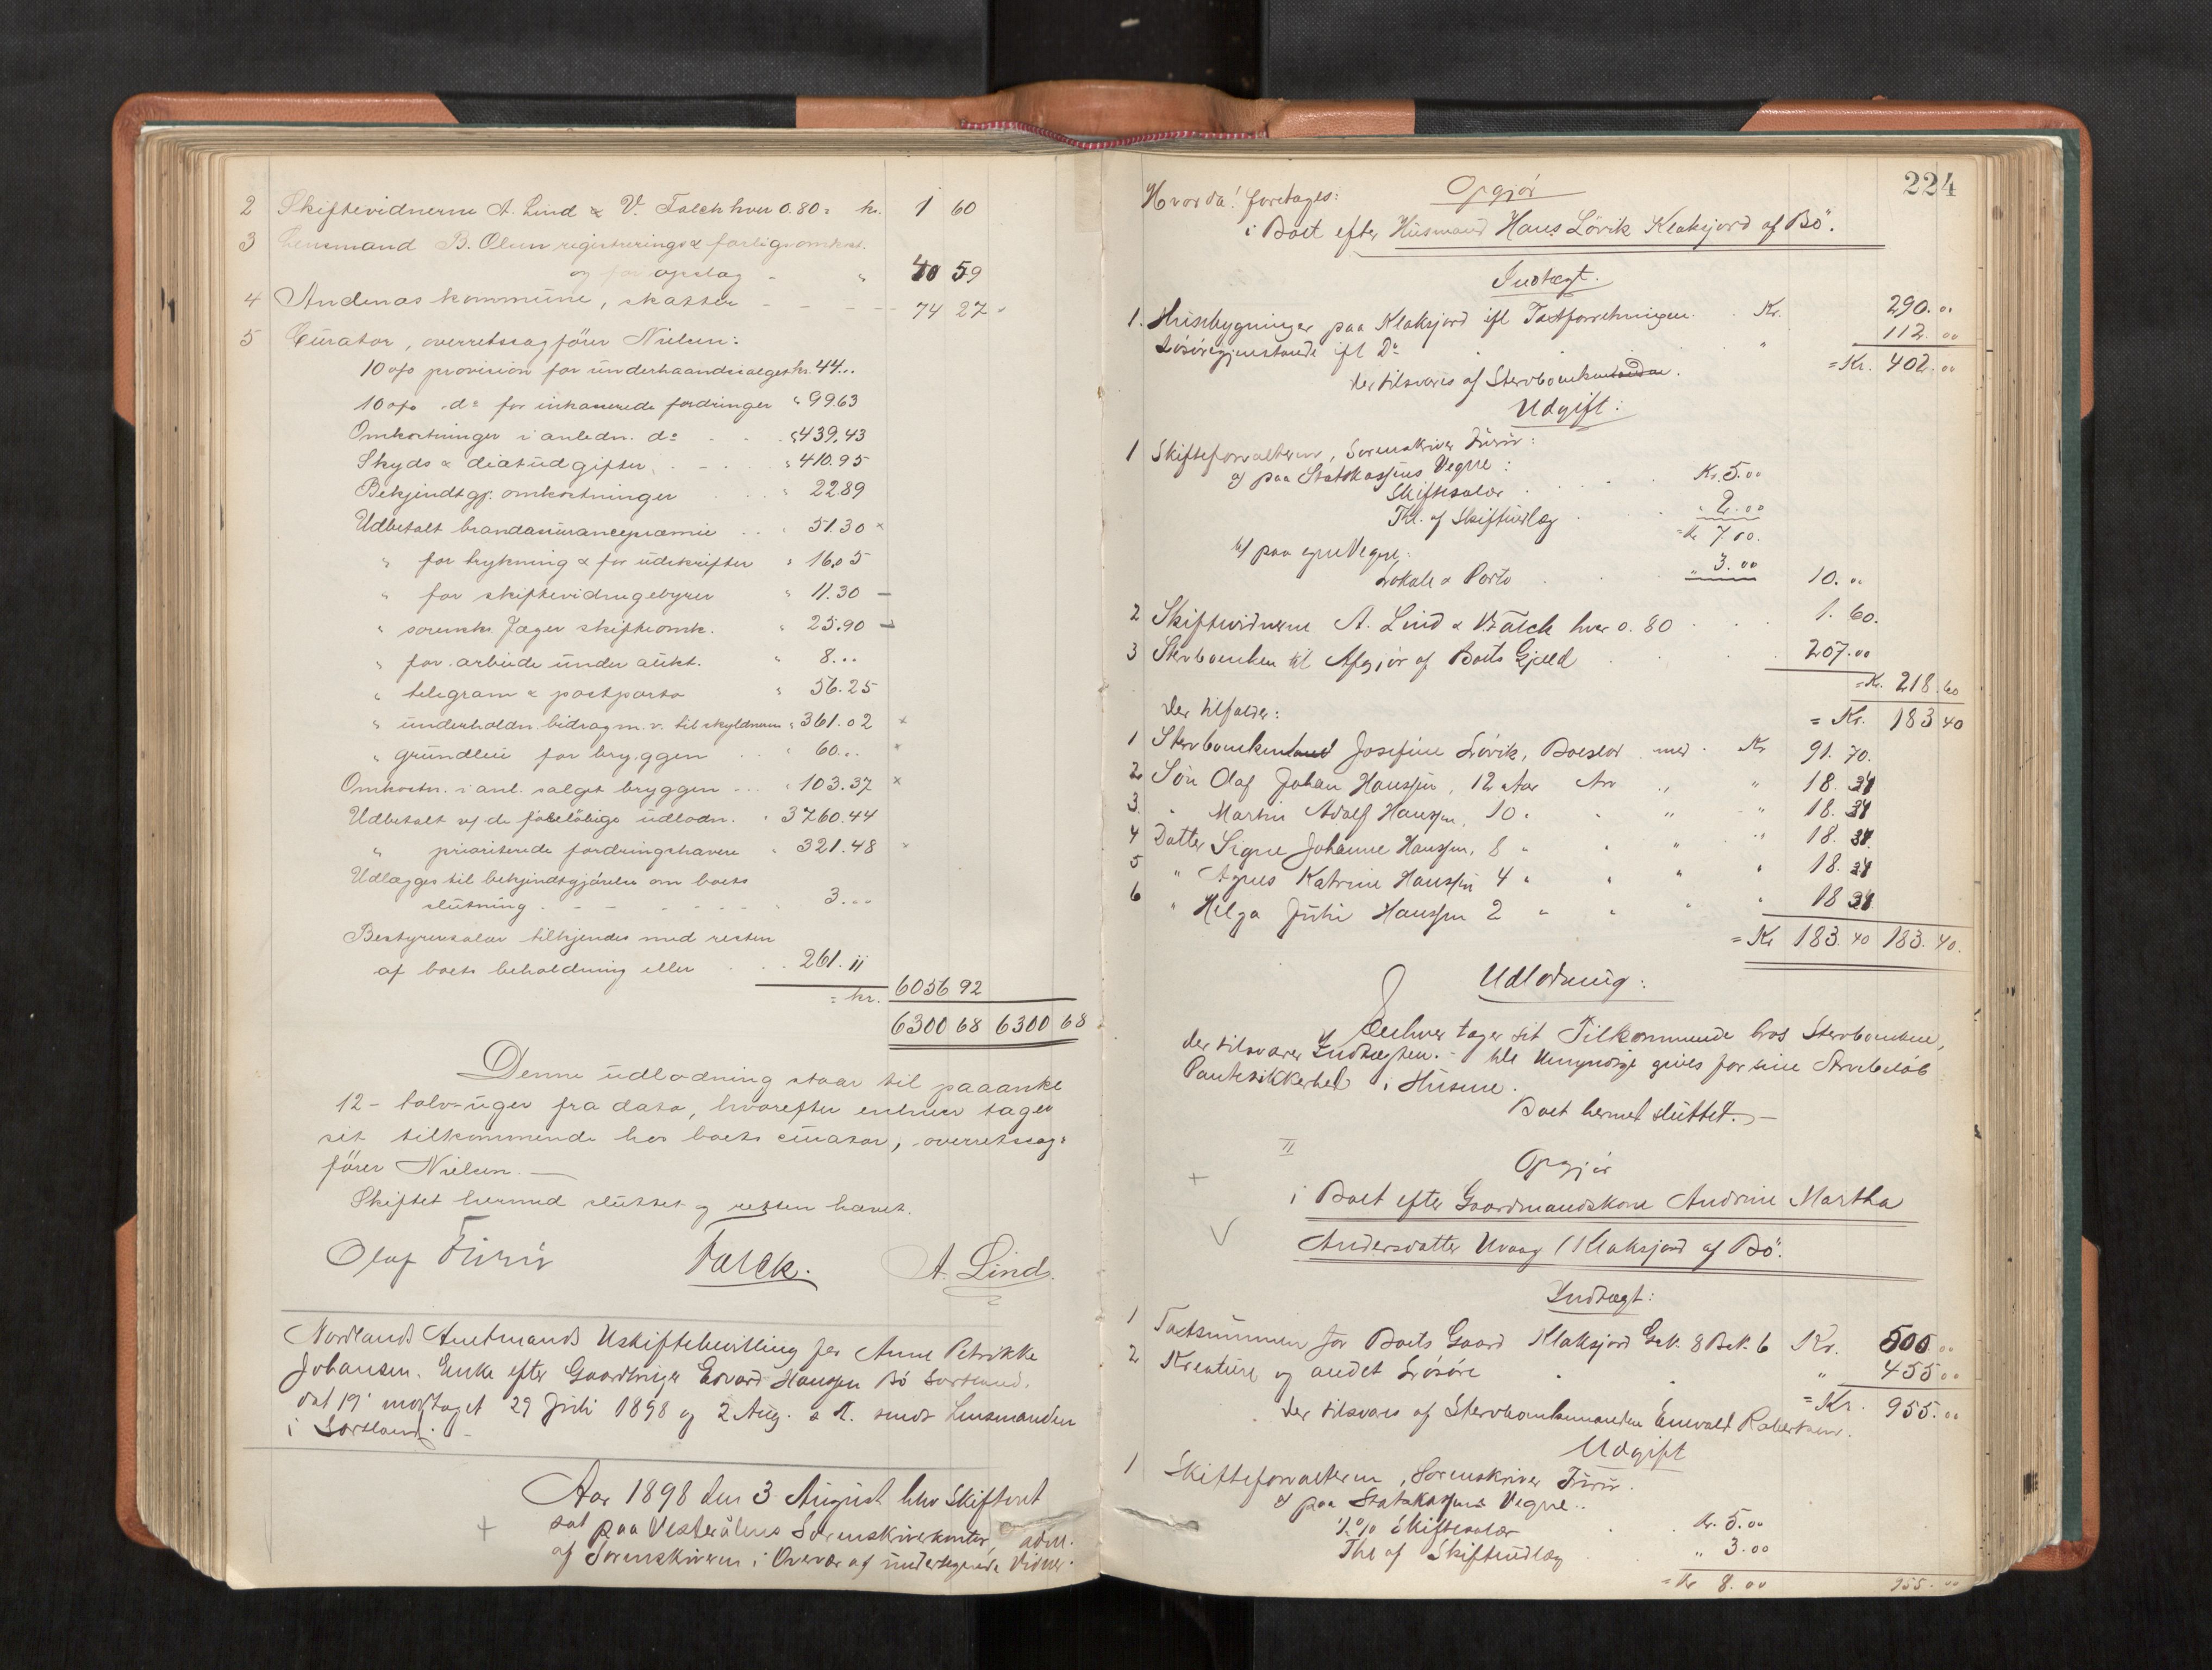 2 Skiftevidnerne A. Lind & V. Falck hver 0.80 = kr. 1 60
3 Lensmand B. Olsen registrerings &
og for opslag - " 40 59
4 Andenæs kommune, skatter - - - 74 27
5 Curator, overretssagfører Nielsen:
10 o/o provision for underhaandssalget kr. 44...
10 o/o do for inkasserede fordringer " 99.63
Omkostninger i anledn. do " 439.43
Skyds & diætudgifter " 410.95
Bekjendtgj. omkostninger " 22.89
Udbetalt brandassurancepræmie " 51.30 ×
" for trykning & for udskrifter " 16.05
" for skiftevidnegebyrer " 11.30 -
" sorenskr. Jæger skifteomk. " 25.90 -
" for arbeide under aukt. " 8...
" telegram & postporto " 56.25
" underholdn. bidrag m. v. til skyldneren " 361.02 ×
" grundleie for bryggen " 60.. ×
Omkostn. i anl. salget bryggen " 103.37 ×
Udbetalt v/ de foreløbige udlodn. " 3760.44
" prioriterede fordringshavere " 321.48 ×
Udlægges til bekjendtgjørelse om boets
slutning " 3...
Bestyrersalær tilkjendes med resten
af boets beholdning eller 261.11
= kr. 6056 92
6300 68 6300 68
Denne udlodning staar til paaanke
12 - tolv - uger fra dato, hvorefter enhver tager
sit tilkommende hos boets curator, overretssag=
fører Nielsen. -
Skiftet hermed sluttet og retten hævet.
Olaf Furu Falck. A. Lind.
Nordlands Amtmands Uskiftebevilling for Anne Petrikke
Johansen, Enke efter Gaardbruger Edvard Hanssen Bø Sortland,
dat 19' modtaget 29 Juli 1898 og 2 Aug. s. A. sendt Lensmanden
i Sortland. -
Aar 1898 den 3 August blev Skifteret
sat paa Vesterålens Sorenskriverkontor, adm.
af Sorenskriveren i Overvær af undertegnede Vidner.
224
Hvorda! foretages: Opgjør
i Boet efter Husmand Hans Løvik Klaksjord af Bø.
Indtægt.
1. Husebygninger paa Klaksjord ifl Taxtforretningen. Kr. 290.00
Løsøregjenstande ifl Do " 112.00
der tilsvares af Stervboenken = Kr. 402.00
Udgift:
1 Skifteforvalteren, Sorenskriver Furu:
a/ paa Statskassens Vegne:
Skiftesalær Kr. 5.00
Thl. af Skifteudlæg " 2.00
= Kr 7.00.
b/ paa egne Vegne:
Lokale & Porto " 3.00 10.00
2 Skiftevidnerne A. Lind & V Falck hver 0.80 1.60.
3 Stervboenken til Afgjør af Boets Gjæld 207.00
= Kr. 218.60
der tilfalder: = Kr. 183 40
1 Stervboenken Josefine Løvik, Boeslod med Kr 91.70.
2 Søn Olaf Johan Hanssen, 12 Aar Arv " " 18.34
3. " Martin Adolf Hanssen, 10 " " " " 18.34
4 Datter Signe Johanne Hanssen, 8 " " " " 18.34
5 " Agnes Katrine Hanssen 4 " " " " 18.34
6 " Helga Julie Hanssen 2 " " " " 18 34
= Kr 183.40 183.40.
Udlodning:
Enhver tager sit Tilkommende hos Stervboenken,
der tilsvarer Indtægten. - De Umyndige gives for sine Arvebeløb
Pantesikkerhed i Husene.
Boet hermed sluttet. -
II
Opgjør
i Boet efter Gaardmandskone Andrine Martha
Andersdatter Uvaag / Klaksjord af Bø.
Indtægt:
1 Taxtsummen for Boets Gaard Klaksjord G.N. 8 B.N. 6 Kr. 500.00
2 Kreature og andet Løsøre " 455 00
= Kr. 955.00
der tilsvares af Stervboenkemanden Enevald Robertsen.
Udgift
1 Skifteforvalteren, Sorenskriver Furu.
a/ paa Statskassens Vegne..
1/2 % Skiftesalær Kr. 5.00
Thl af Skifteudlæg " 3.00
= Kr 8.00 955.00